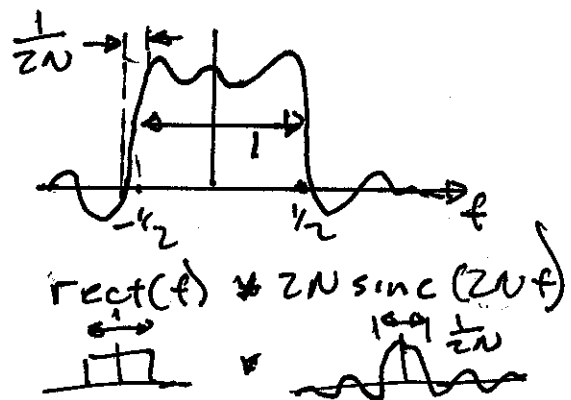 1/2N
1
-1/2
1/2
f
rect(f) * 2N sinc(2Nf)
1
*
1/2N